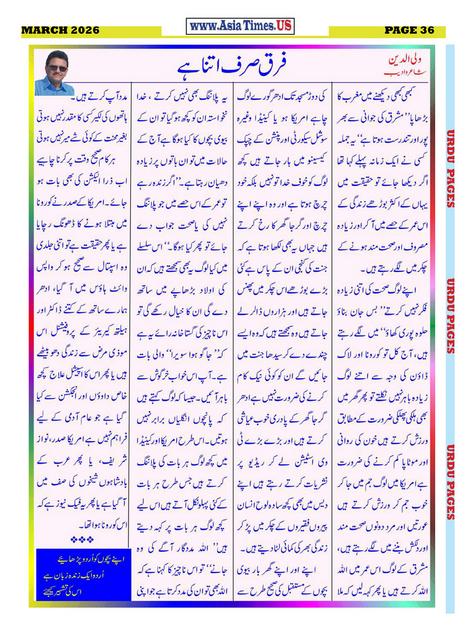 MARCH 2026
www.AsiaTimes.US
PAGE 36
فرق صرف اتنا ہے
ولی الدین
شاعر و ادیب
کبھی کبھی دیکھنے میں مغرب کا
بڑھاپا" مشرق کی جوانی سے بھر
پور اور تندرست ہوتا ہے" یہ جملہ
کسی نے ایک زمانہ پہلے کہا تھا
اگر دیکھا جائے تو حقیقت میں
یہاں کے اکثر بوڑھے زندگی کے
اس عمر کے حصے میں آکر اور زیادہ
مصروف اور صحت مند ہونے کے
چکر میں لگے رہتے ہیں۔
اپنے لوگ صحت کی اتنی زیادہ
فکر نہیں کرتے" بس جان بناؤ
حلوہ پوری کھاؤ" میں لگے رہتے
ہیں، آج کل تو کورونا اور لاک
ڈاؤن کی وجہ سے اتنے لوگ
زیادہ باہر نہیں نکلتے تو پھر گھر میں
بھی ہلکی پھلکی ضرورت کے مطابق
ورزش کرتے ہیں خون کی روانی
اور موٹاپا کم کرنے کی ضرورت
ہے امریکا میں لوگ جم میں جا کر
خوب جم کر ورزش کرتے ہیں
عورتیں اور مرد دونوں صحت مند
اور دلکش بننے میں لگے رہتے ہیں،
مشرق کے لوگوں میں اس عمر میں
اللہ اللہ کرتے ہیں یا پھر کہیں کہ ملا
کی دوڑ مسجد تک ادھر گورے لوگ
چاہے امریکا ہو یا کینیڈا وغیرہ
سوشل سیکورٹی اور پنشن کے چیک
کیسینو میں ہار جاتے ہیں کچھ
لوگ کو خوف خدا تو نہیں بلکہ خود
چرچ ہوتا ہے اور وہ اپنے اپنے
چرچ اور گرجا گھر کا رخ کرتے
ہیں جہاں یہ بھی لکھا ہوتا ہے کہ
جنت کی کنجی ان کے پاس ہے کئی
بڑے بوڑھے اس چکر میں پھنس
جاتے ہیں اور ہزاروں ڈالر لے
جاتے ہیں وہ سمجھتے ہیں کہ وہ ایسے
چندے دے کر سیدھا جنت میں
جائیں گے ان کو کوئی نیک کام
کرنے کی ضرورت نہیں ہے ادھر
گرجا گھر کے پادری خوب عیاشی
کرتے ہیں اور بڑے بڑے ٹی
وی اسٹیشن لے کر ریڈیو پر
نشریات کرتے رہتے ہیں، اپنے
دیس میں بھی کچھ سادہ لوح انسان
پیروں فقیروں کے چکر میں پڑ کر
زندگی بھر کی کمائی لٹا دیتے ہیں۔
اپنے اور اپنے گھر بار بیوی
بچوں کے مستقبل کی صحیح طرح سے
یہ پلاننگ بھی نہیں کرتے، خدا
نخواستہ ان کو کچھ ہو گیا تو ان کے
بیوی بچوں کا کیا ہوگا ہے آج کے
حالات میں تو ان باتوں پر زیادہ
دھیان رہتا ہے۔" اگر زندہ رہے
تو عمر کے اس حصے میں جو پلاننگ
نہیں کی یا صحت جواب دے
جائے تو پھر کیا ہوگا۔" اس سلسلے
میں کیا لوگ یہ بھی سمجھتے ہیں کہ ان
کی اولاد بڑھاپے میں ساتھ
دے گی ان کا خیال رکھے گی تو
اس ناچیز کی گستاخانہ رائے یہ ہے
کہ" جاگو ہوا سویرا" والی بات
ہے۔ آپ اس خواب خرگوش سے
باہر آئیں۔ جیسا کہ کہتے ہیں
کہ پانچوں انگلیاں برابر نہیں
ہوتیں۔ اس طرح امریکا اور کینیڈا
میں کچھ لوگ ہر بات کی پلاننگ
کرتے ہیں جس طرح ہر بات
کے کئی پہلو نکل آتے ہیں اس لیے
کچھ لوگ ہر بات پر کہہ دیتے
ہیں" اللہ مددگار آگے کی وہ
جانے" تو اس ناچیز کا کہنا ہے کہ
اللہ بھی تو ان کی مدد کرتا ہے جو اپنی
مدد آپ کرتے ہیں۔
ہاتھوں کی لکیریں کا مقدر نہیں ہوتی
بغیر محنت کے کوئی شے میسر نہیں ہوتی
ہر کام صحیح وقت پر کرنا چاہیے
اب ذرا الیکشن کی بھی بات ہو
جائے۔ امریکا کے صدر نے کورونا
میں مبتلا ہونے کا ڈھونگ رچایا
ہے یا پھر حقیقت ہے تو اتنی جلدی
وہ اسپتال سے صحیح ہو کر واپس
وائٹ ہاؤس میں آ گیا، ادھر
ہمارے ساتھ کے کتنے ڈاکٹر اور
ہیلتھ کیریئر کے پروفیشنل اس
موذی مرض سے زندگی دھو بیٹھے
ہیں یا پھر اس کا اسپیشل علاج کچھ
خاص دواؤں اور انجکشن سے کیا
گیا ہے جو عام آدمی کے لیے
فراہم نہیں ہے امریکا صدر، نواز
شریف، یا پھر عرب کے
بادشاہوں شیخوں کی صف میں
آ گیا ہے یا پھر یہ فیک نیوز ہے کہ
اس کورونا ہوا تھا۔
اپنے بچوں کو اُردو پڑھائیے
اُردو ایک زندہ زبان ہے
اس کی تشہیر کیجئے
URDU PAGES
URDU PAGES
URDU PAGES